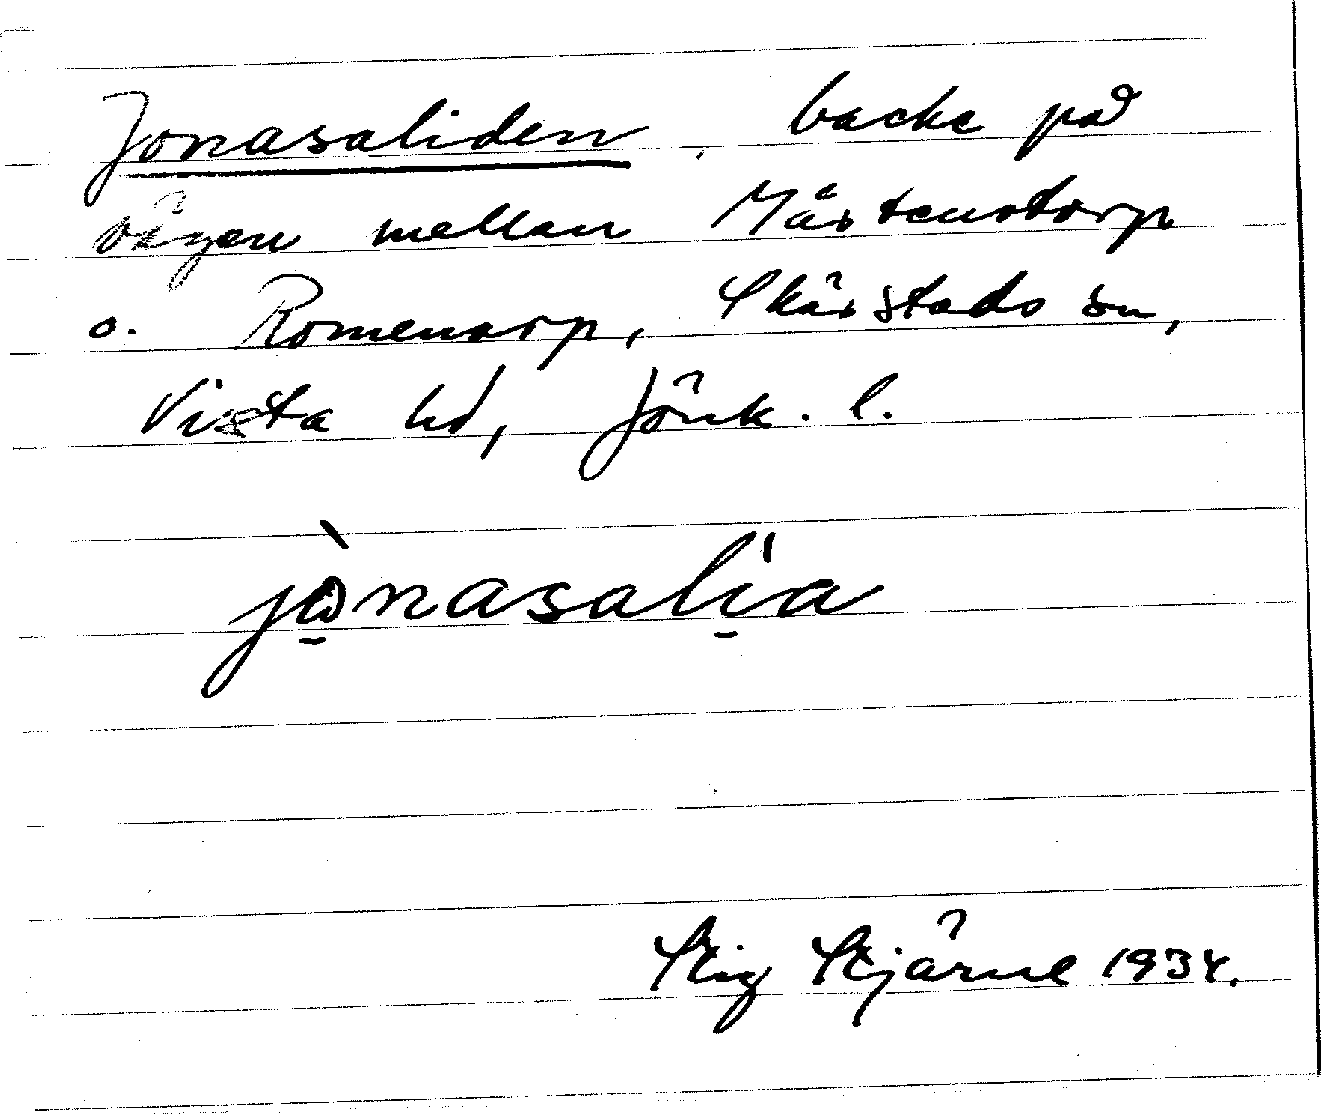 Jonasaliden, backe på
vägen mellan Mårtenstorp
o. Romenorp, Skärstads sn,
Vista hd, Jönk. l.
jònasalia
Stig Stjärne 1934.